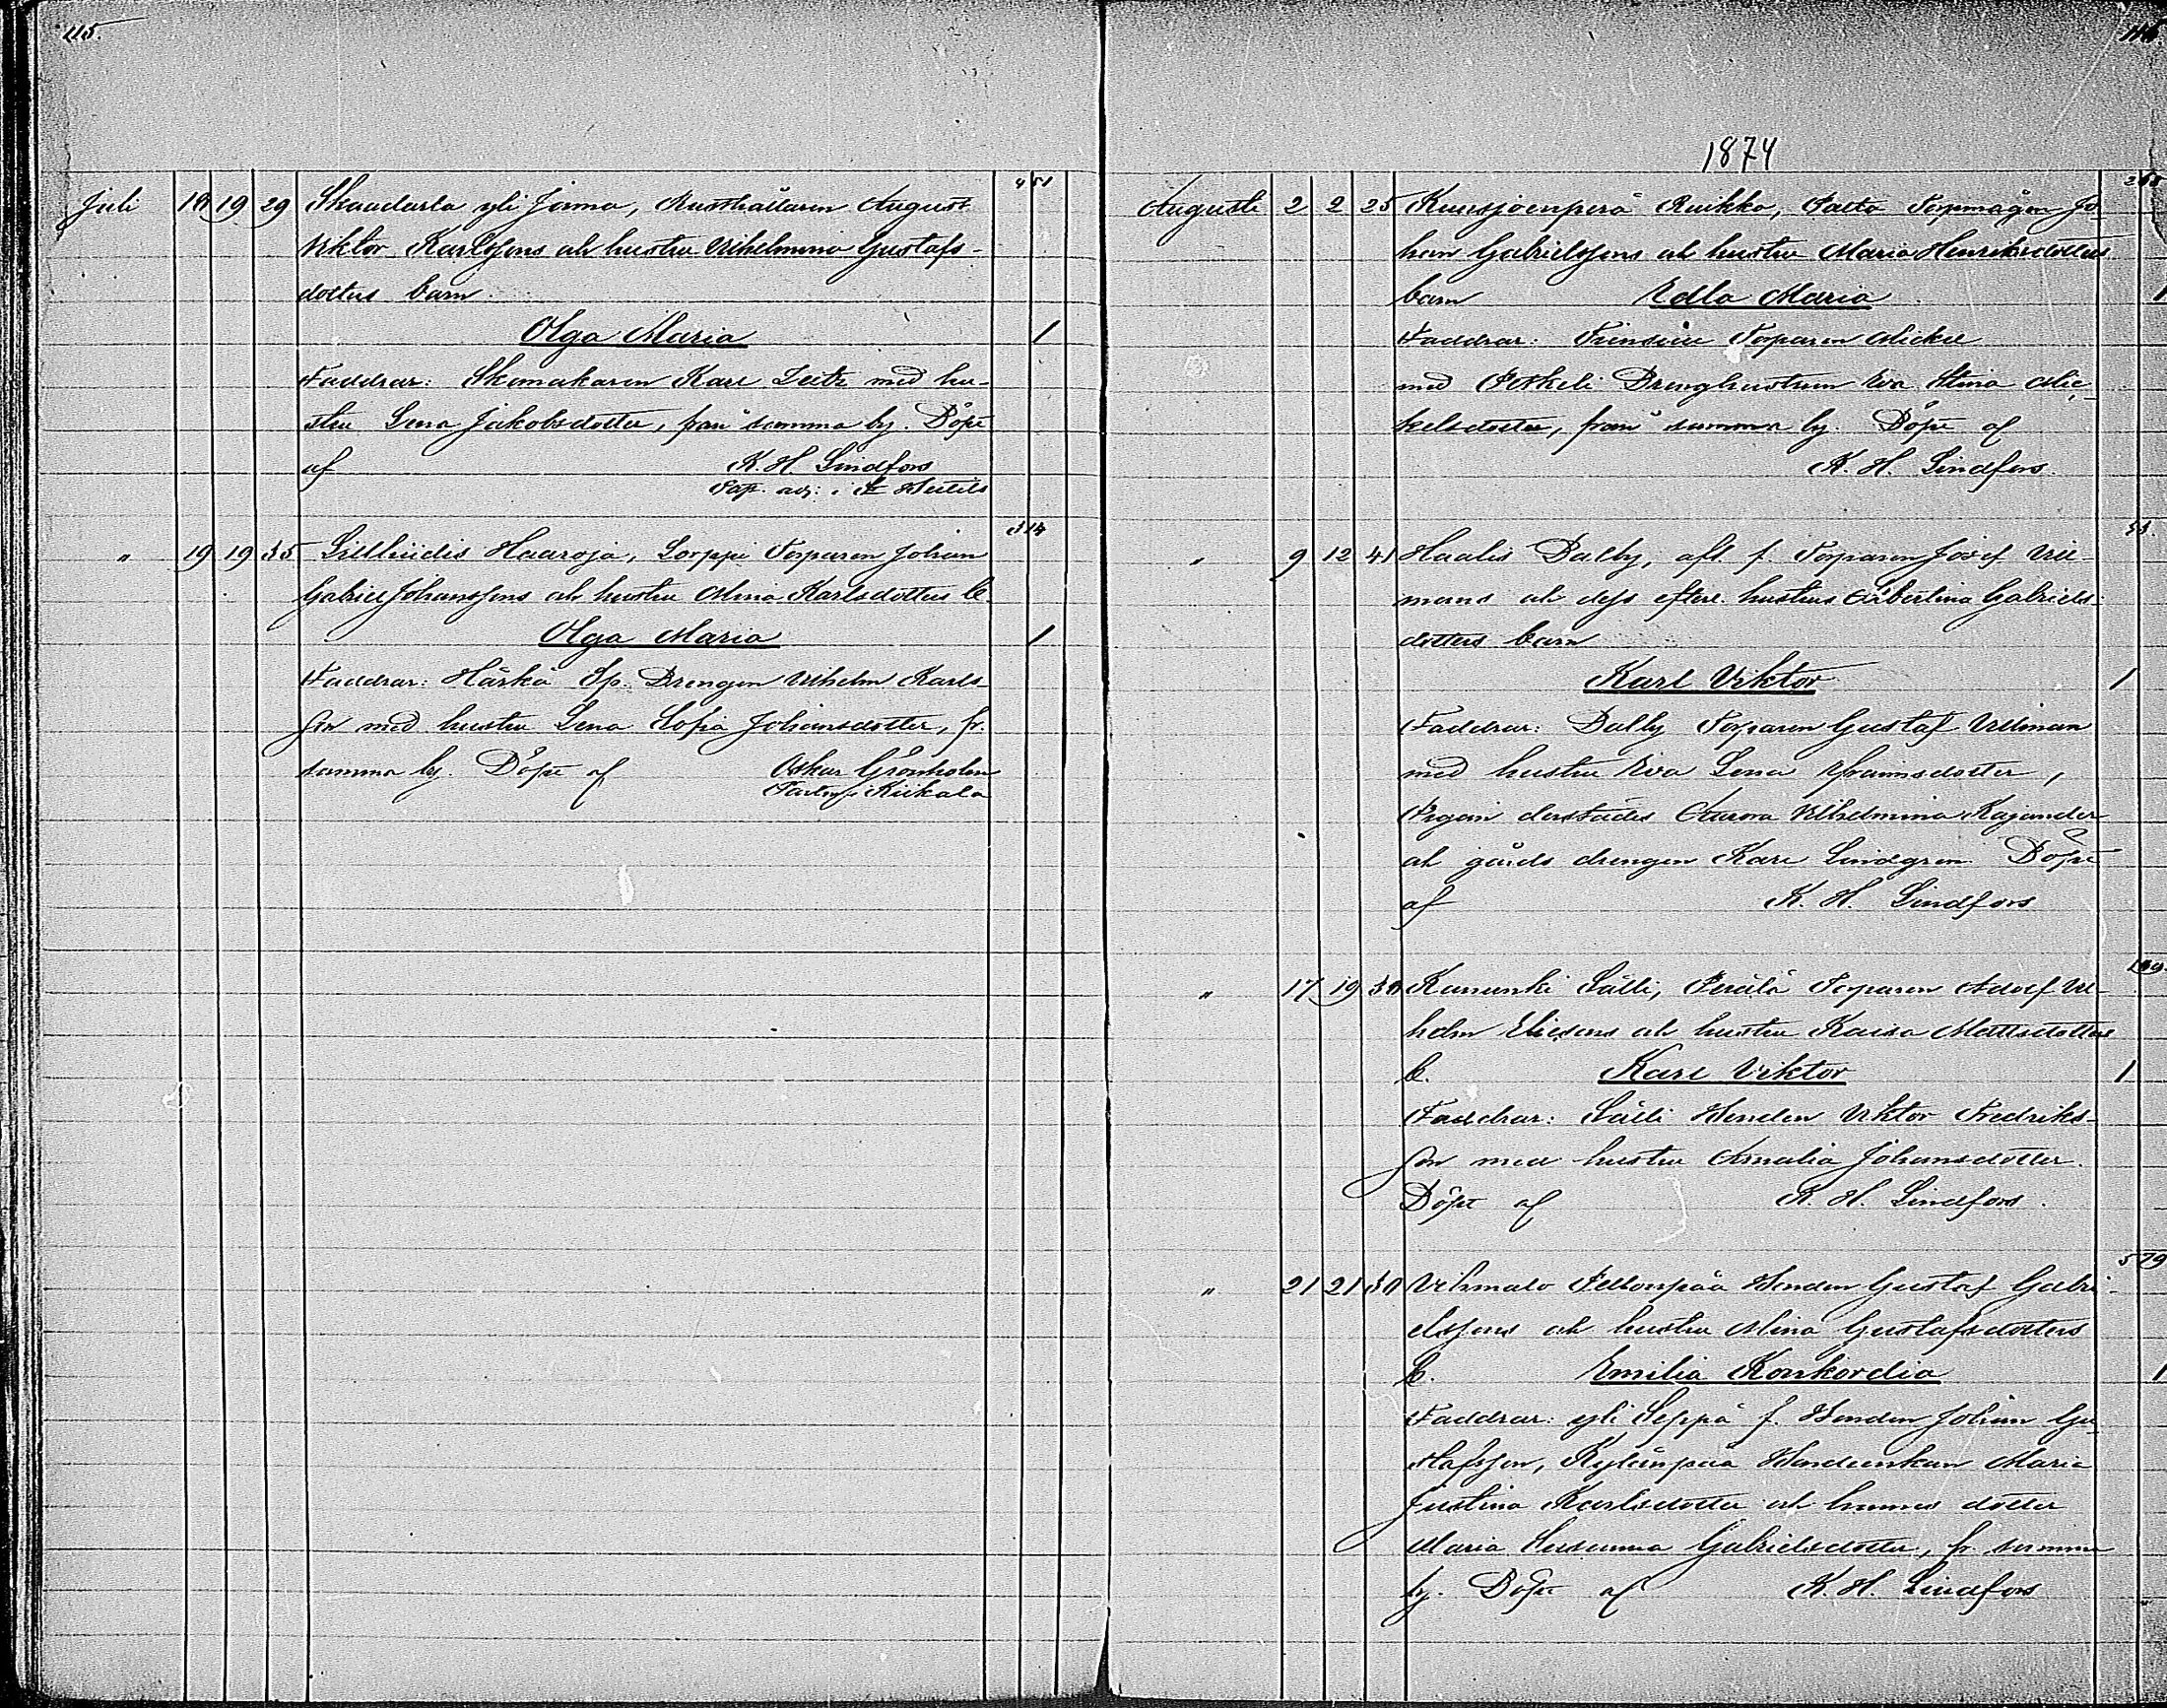 115.
Juli 18 19 29 Skandarla yli Jonna, Rusthållaren August 451
Viktor Karlssons och hustru Vilhelmina Gustafs-
dotters barn
Olga Maria 1
Faddrar: Skomakaren Karl Leitz med hu-
stru Lena Jakobsdotter, från samma by. Döpt
af K. H. Lindfors
Past. adj: i
" 19 19 35 Haaroja, Torparen Johan 314
Gabriel Johanssons och hustru Mina Karlsdotters b.
Olga Maria 1
Faddrar: Härkä Sp. Drengen Vilhelm Karls-
son med hustru Lena Sofia Johansdotter, fr.
samma by. Döpt af Oskar Grönholm
Kiikala
1874
Augusti 2 2 25 Kuusjoenperä Ruikka, Torpmågen Jo
han Gabrielssons och hustru Maria Henriksdotters
barn Edla Maria 1
Faddrar: Torparen Mickel
med Drenghustrun Eva Stina Mic-
kelsdotter, från samma by. Döpt af
K. H. Lindfors.
" 9 12 41 Haalis Dalby, afl. f. Torparen Josef Vill- 53.
mans och dess efterl. hustrus Albertina Gabriels-
dotters barn
Karl Viktor 1
Faddrar: Dalby Torparen Gustaf Villman
med hustru Eva Lena Efraimsdotter,
Pigan derstädes Aurora Vilhelmina Kajander
och gårds drengen Karl Lindgren. Döpt
af K. H. Lindfors
" 17 19 Kanunki Sälli, Perälä Torparen Adolf Vil-
helm Eliassons och hustru Kaisa Mattsdotters
b. Karl Viktor 1
Faddrar: Sälli Bonden Viktor Fredriks-
son med hustru Amalia Johansdotter.
Döpt af K. H. Lindfors.
" 21 21 30 Vihmalo Pellonpää Bonden Gustaf Gabri- 579
elssons och hustru Mina Gustafsdotters
b. Emilia Konkordia 1
Faddrar: yli Seppä f. Bonden Johan Gu-
stafsson, Kylänpää Bondeenkan Maria
Justina Karlsdotter och hennes dotter
Maria Susanna Gabrielsdotter, fr. samma
by. Döpt af K. H. Lindfors